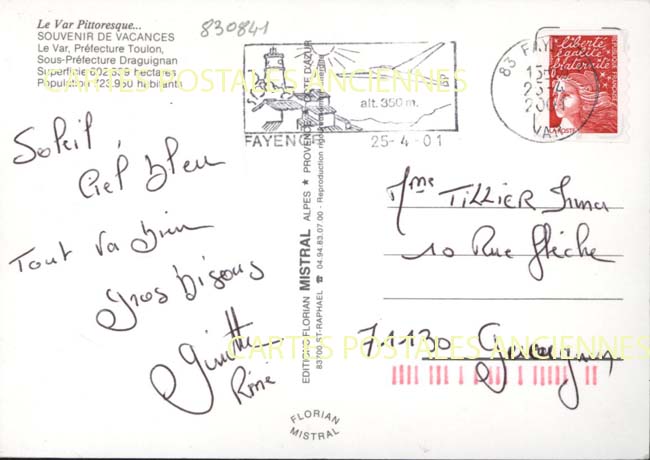 Le Var Pittoresque...
SOUVENIR DE VACANCES
Le Var, Préfecture Toulon,
Sous-Préfecture Draguignan
Superficie 602 539 hectares
Population 723.950 habitants
830841
CARTES POSTALES ANCIENNES
alt. 350 m.
FAYENCE
25-4-01
83 FAY
25-4
VAR
liberté
égalité
fraternité
LA POSTE
Soleil,
Ciel bleu
Tout va bien
gros bisous
Ginette
EDITION FLORIAN MISTRAL ALPES ★ PROVENCE ★ CÔTE D'AZUR
83700 ST-RAPHAEL ☎ 04.94.83.07.00 - Reproduction
Mme TILLIER Irma
10 Rue Flèche
71130 Gueugnon
CARTES POSTALES ANCIENNES
FLORIAN
MISTRAL